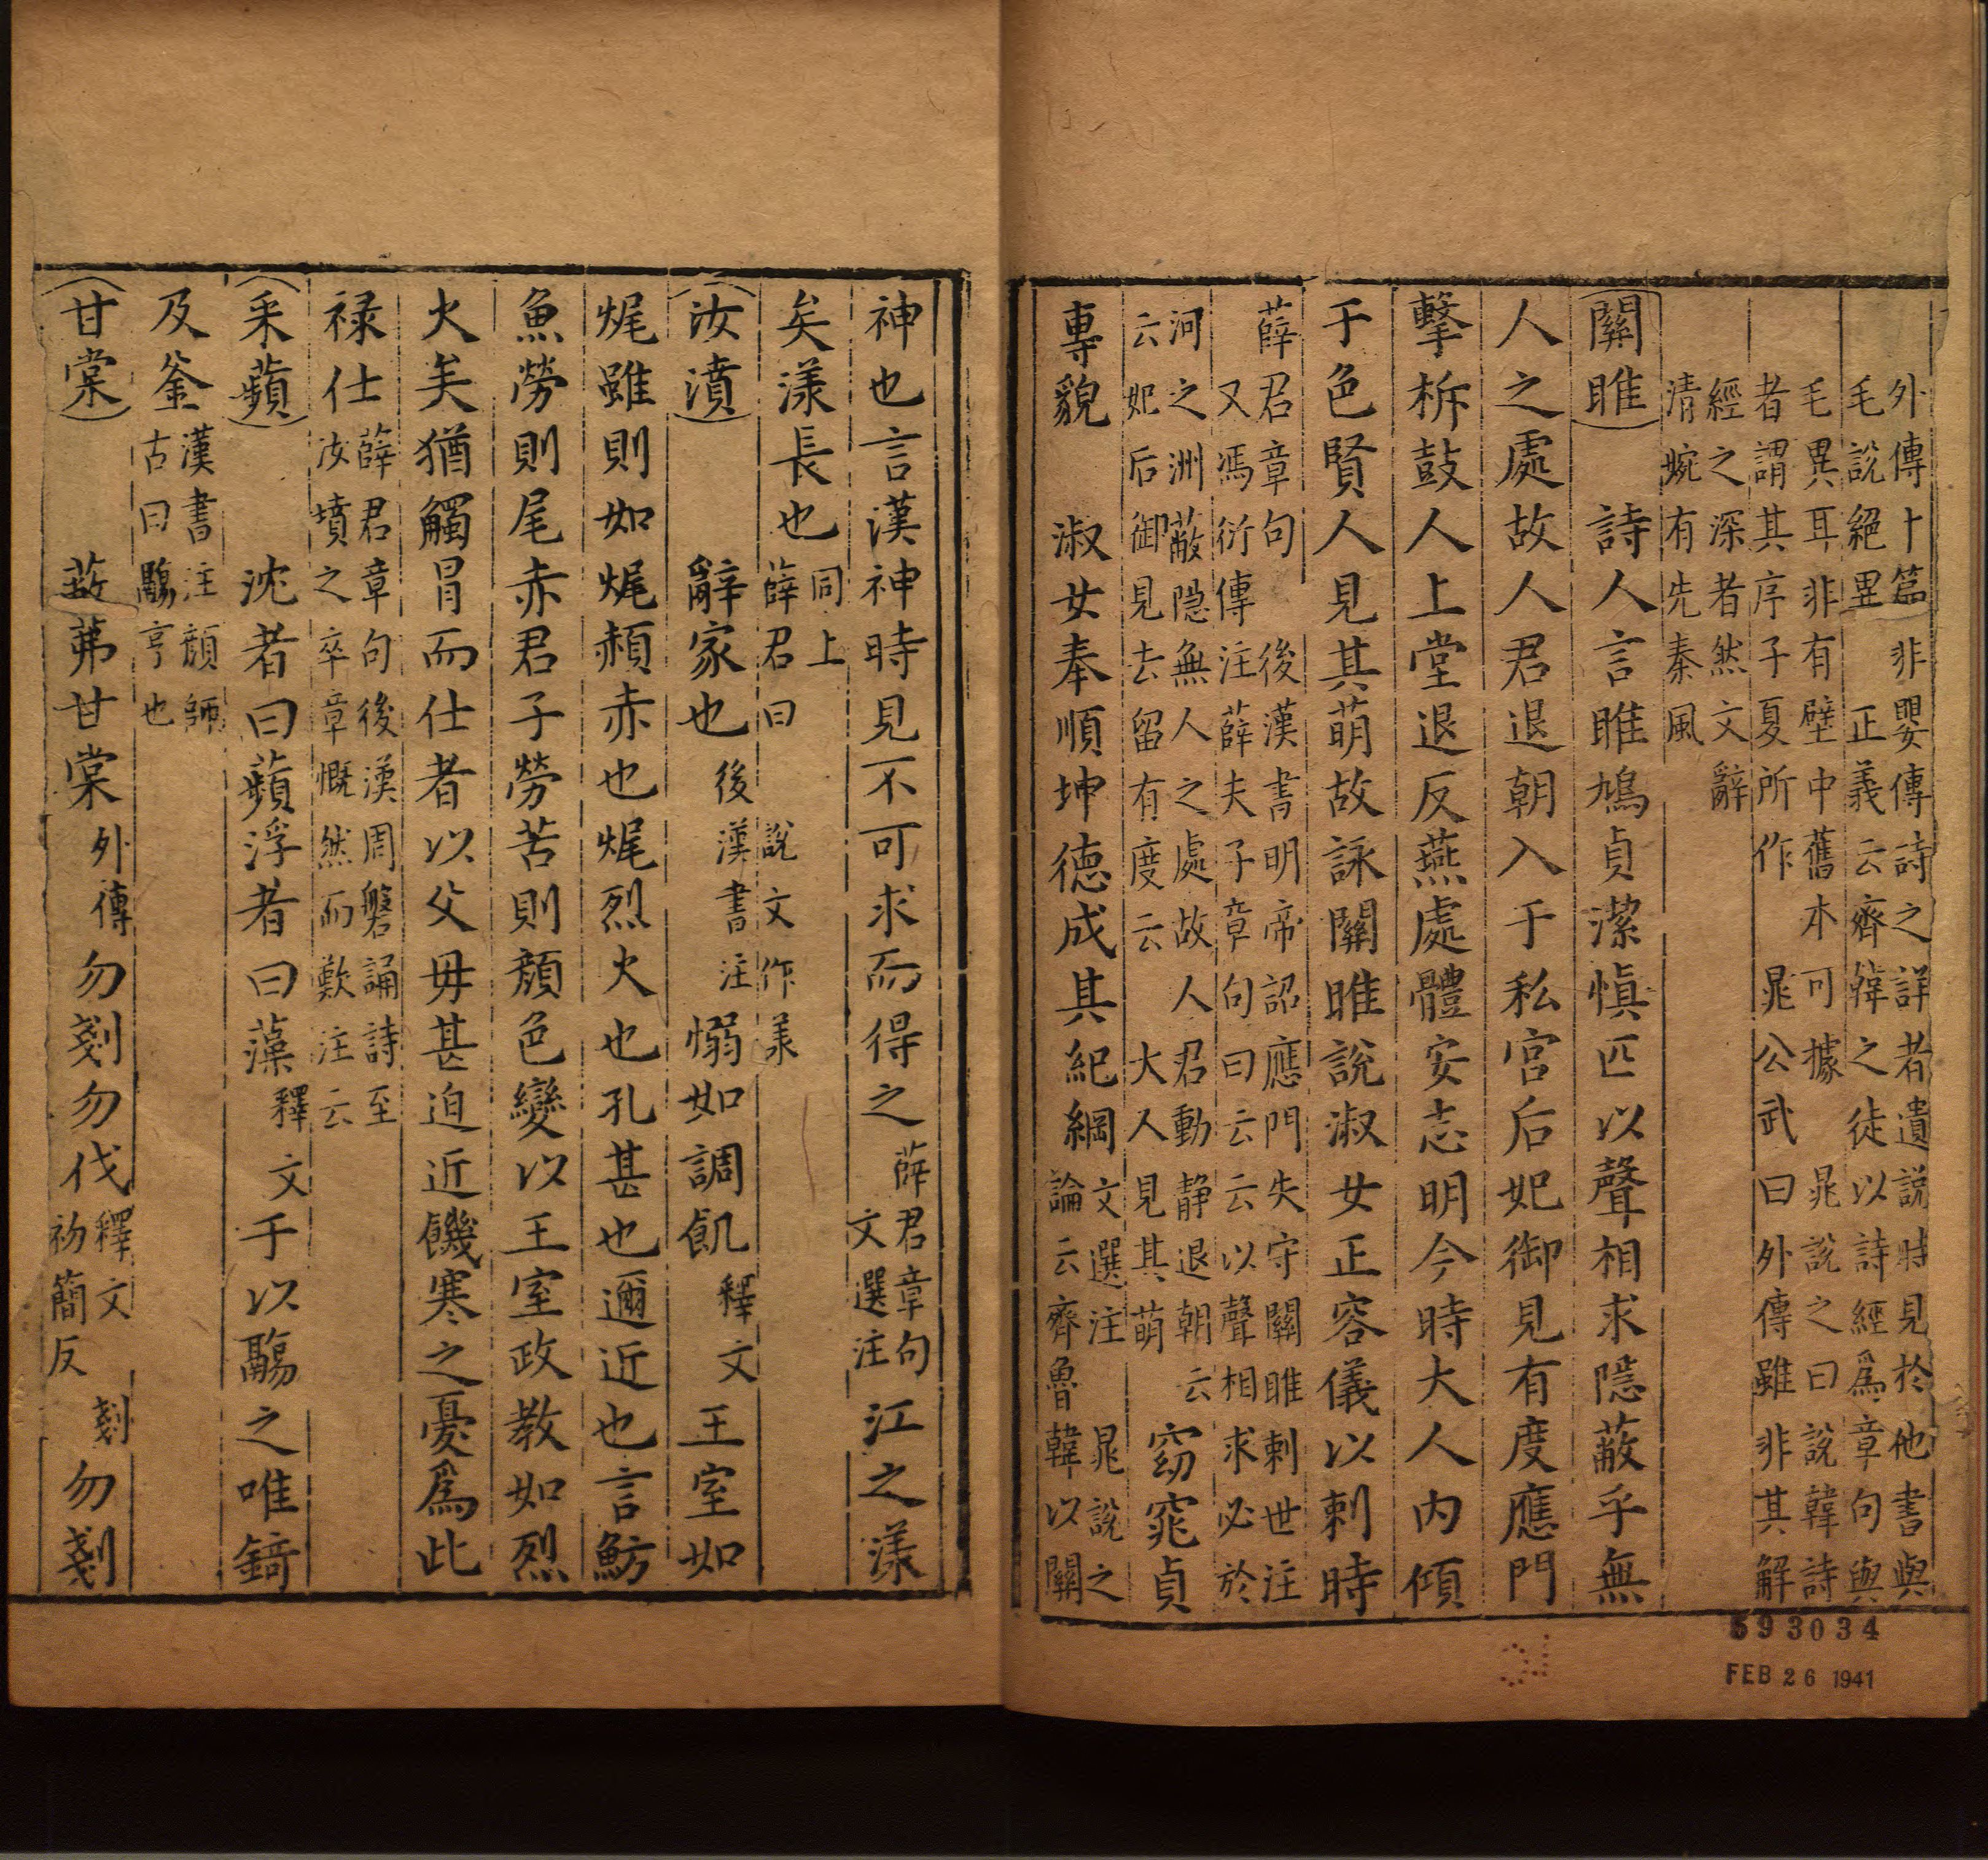 外傳十篇非嬰傳詩之詳者遺說時見於他書與
毛說絕異 正義云齊韓之徒以詩經爲章句與
毛異耳非有壁中舊本可據 晁說之曰說韓詩
者謂其序子夏所作 晁公武曰外傳雖非其解
經之深者然文辭
清婉有先秦風
關雎 詩人言雎鳩貞潔愼匹以聲相求隱蔽乎無
人之處故人君退朝入于私宮后妃御見有度應門
擊柝鼓人上堂退反燕處體安志明今時大人內傾
于色賢人見其萌故詠關雎說淑女正容儀以刺時
薛君章句 後漢書明帝詔應門失守關雎刺世注
又馮衍傳注薛夫子章句曰云云以聲相求必於
河之洲蔽隠無人之處故人君動静退朝云
云妃后御見去留有度云 大人見其萌
窈窕貞
專貌 淑女奉順坤德成其紀綱
文選注 晁說之
論云齊魯韓以關
神也言漢神時見不可求而得之
薛君章句
文選注
江之漾
矣漾長也
同上
薛君曰 說文作羕
汝濆 辭家也 後漢書注 惄如調飢 釋文 王室如
㷄雖則如㷄赬赤也㷄烈火也孔甚也邇近也言魴
魚勞則尾赤君子勞苦則顏色變以王室政教如烈
火矣猶觸冒而仕者以父毋甚迫近饑寒之憂爲此
禄仕
薛君章句後漢周磐誦詩至
汝墳之卒章慨然而歎注云
采蘋 沈者曰蘋浮者曰藻 釋文 于以鬺之唯錡
及釜
漢書注顏師
古曰鬺亨也
甘棠 蔽茀甘棠 外傳 勿剗勿伐
釋文
初簡反
剗 勿剗
593034
FEB 26 1941